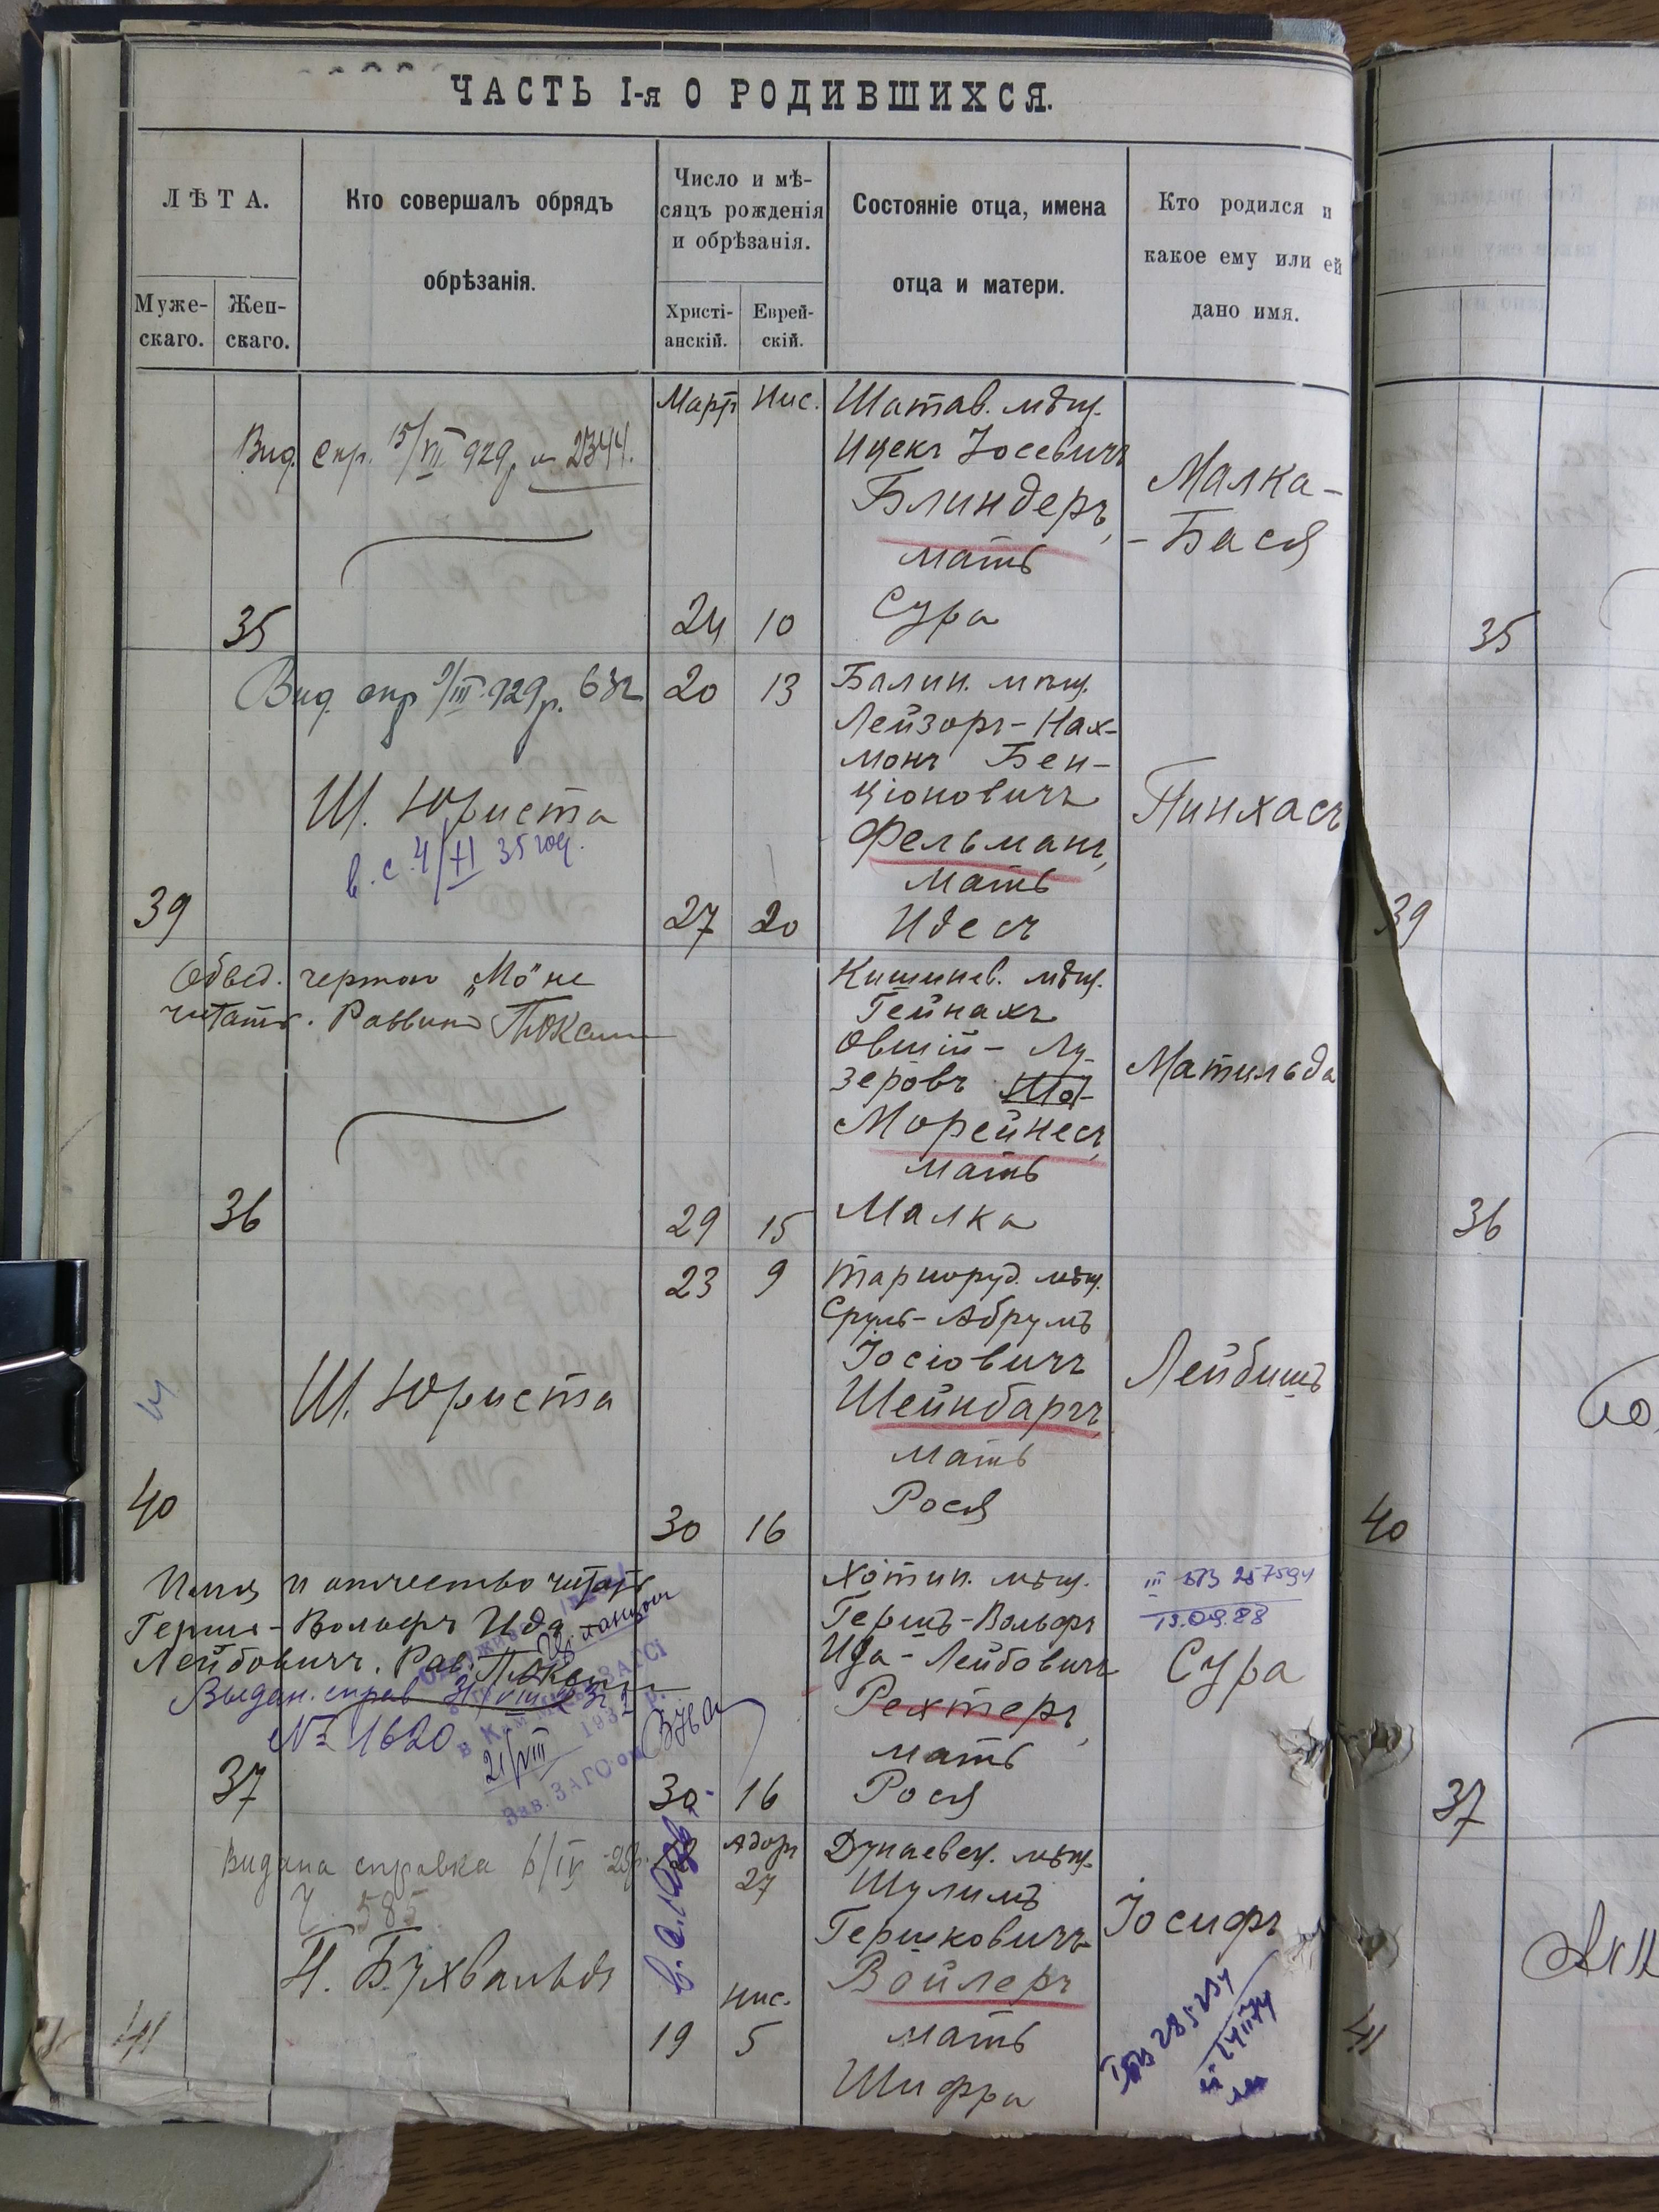 ЧАСТЬ I-я О РОДИВШИХСЯ.
ЛѢТА.
Муже-
скаго.
Жен-
скаго.
Кто совершалъ обрядъ
обрѣзанія.
Число и мѣ-
сяцъ рожденія
и обрѣзанія.
Христі-
анскій.
Еврей-
скій.
Состояніе отца, имена
отца и матери.
Кто родился и
какое ему или ей
дано имя.
Март Нис.
Вид. спр. 15/VII 929р. 2344.
35
24 10
Шатав. мѣщ.
Ицекъ Іосевичъ
Блиндеръ,
мать
Сура
Малка-
-Бася
35
Вид. спр 9/III 929р. 632
20 13
Ш. Юриста
в. с. 4/XI 35 год.
39
27 20
Балин. мѣщ.
Лейзоръ-Нах-
монъ Бен-
ціоновичъ
Фельманъ,
мать
Идесъ
Пинхасъ
39
Обвед. чертою „Мо" не
читать. Раввинъ
36
29 15
Кишинев. мѣщ.
Гейнахъ
Овшій-Лу-
зеровъ
Морейнесъ,
мать
Малка
Матильда
36
23 9
Ш. Юриста
40
30 16
Тарноруд. мѣщ.
Сруль-Абрумъ
Іосіовичъ
Шейнбаргъ,
мать
Рося
Лейбишъ
40
Имя и отчество читать
Герш-Вольфъ Ида
Лейбовичъ. Рав.
Выдан. справ
№ 1620
21/VIII
37
30 16
Хотин. мѣщ.
Гершъ-Вольфъ
Ида-Лейбовичъ
Рехтеръ,
мать
Рося
III БТЗ 257594
13.09.88
Сура
37
Видана справка 6/IV
Ч. 585
П. Бухвальдъ
41
Адоръ
27
Нис.
19 5
Дунаевец. мѣщ.
Шулимъ
Гершковичъ
Войлеръ
мать
Шифра
Іосифъ
41